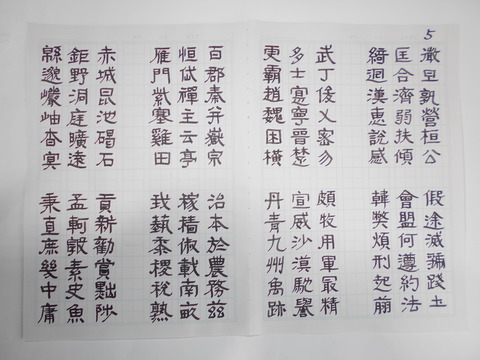 5
微旦孰營桓公
匡合濟弱扶傾
綺迴漢惠說感
武丁俊乂密勿
多士寔寧晉楚
更霸趙魏困橫
假途滅虢踐土
會盟何遵約法
韓弊煩刑起翦
頗牧用軍最精
宣威沙漠馳譽
丹青九州禹跡
百郡秦并嶽宗
恒岱禪主云亭
雁門紫塞雞田
赤城昆池碣石
鉅野洞庭曠遠
緜邈巖岫杳冥
治本於農務茲
稼穡俶載南畝
我藝黍稷稅熟
貢新勸賞黜陟
孟軻敦素史魚
秉直庶幾中庸